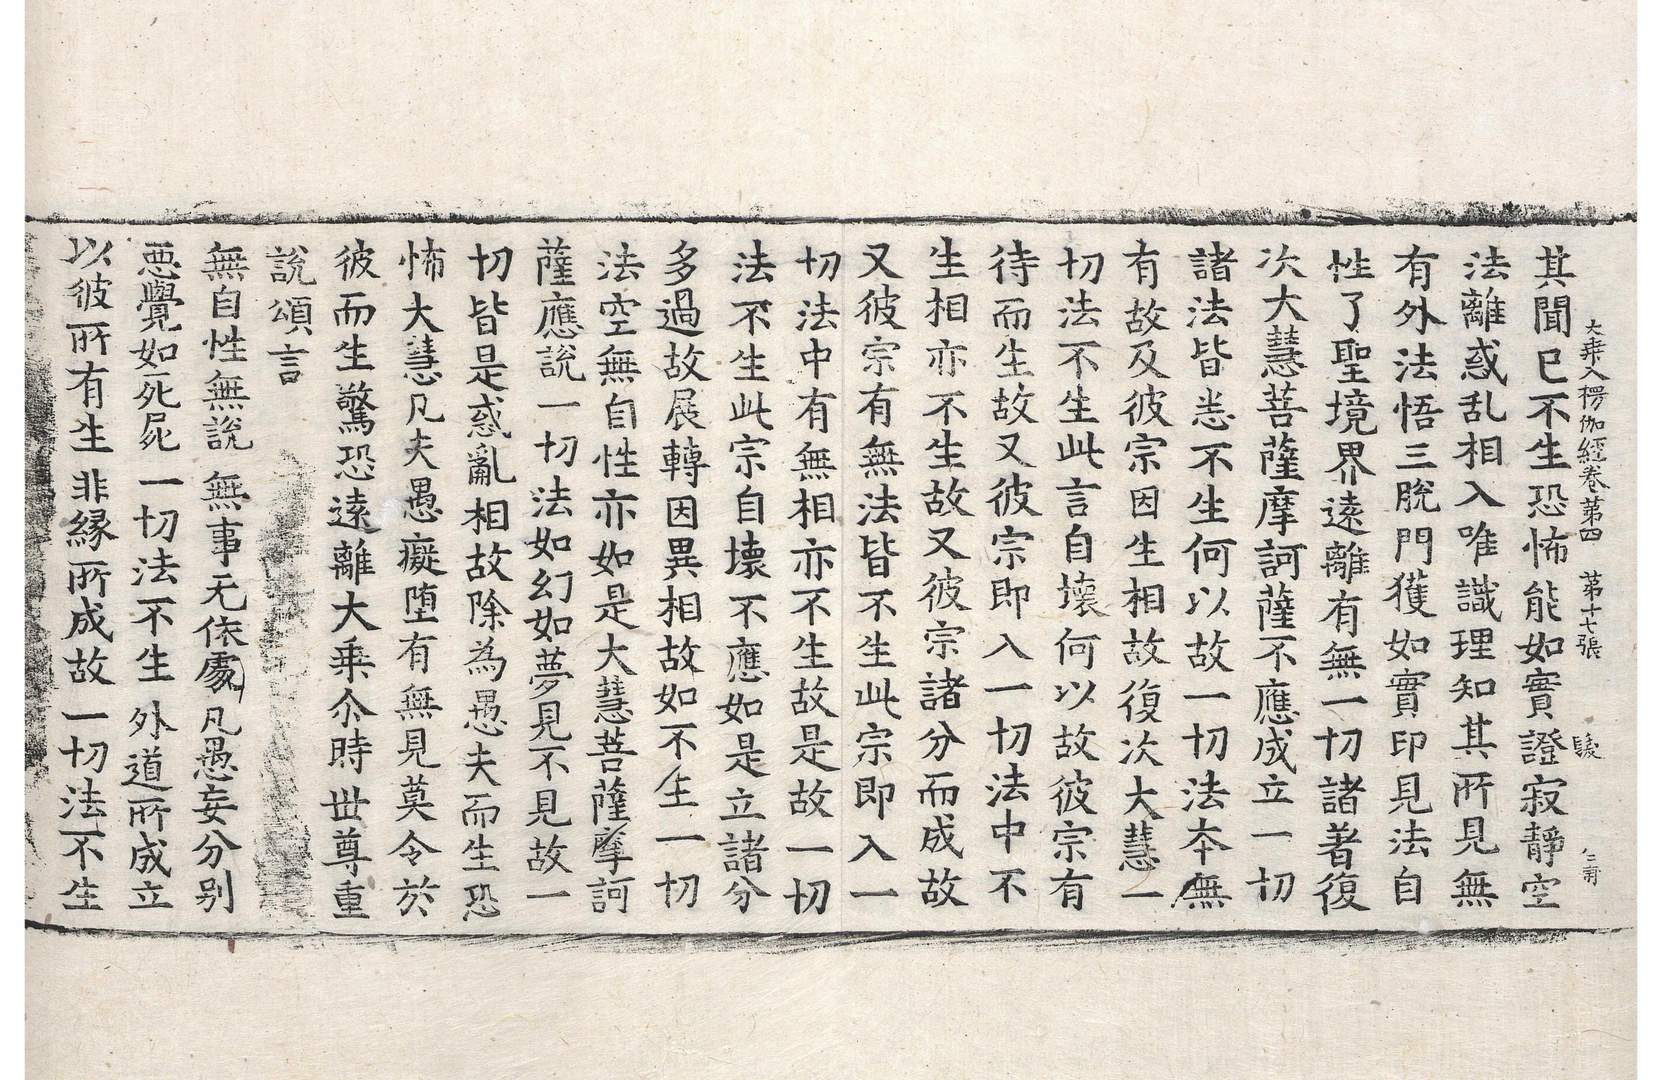 大乗入楞伽經卷第四 第十七張 髲
其聞已不生恐怖能如實證寂靜空
法離惑乱相入唯識理知其所見無
有外法悟三脫門獲如實印見法自
性了聖境界遠離有無一切諸著復
次大慧菩薩摩訶薩不應成立一切
諸法皆悉不生何以故一切法本無
有故及彼宗因生相故復次大慧一
切法不生此言自壞何以故彼宗有
待而生故又彼宗即入一切法中不
生相亦不生故又彼宗諸分而成故
又彼宗有無法皆不生此宗即入一
切法中有無相亦不生故是故一切
法不生此宗自壞不應如是立諸分
多過故展轉因異相故如不生一切
法空無自性亦如是大慧菩薩摩訶
薩應說一切法如幻如夢見不見故一
切皆是惑亂相故除為愚夫而生恐
怖大慧凡夫愚癡堕有無見莫令於
彼而生驚恐遠離大乗尒時世尊重
說頌言
無自性無說 無事无依處 凡愚妄分别
惡覺如死屍 一切法不生 外道所成立
以彼所有生 非緣所成故 一切法不生